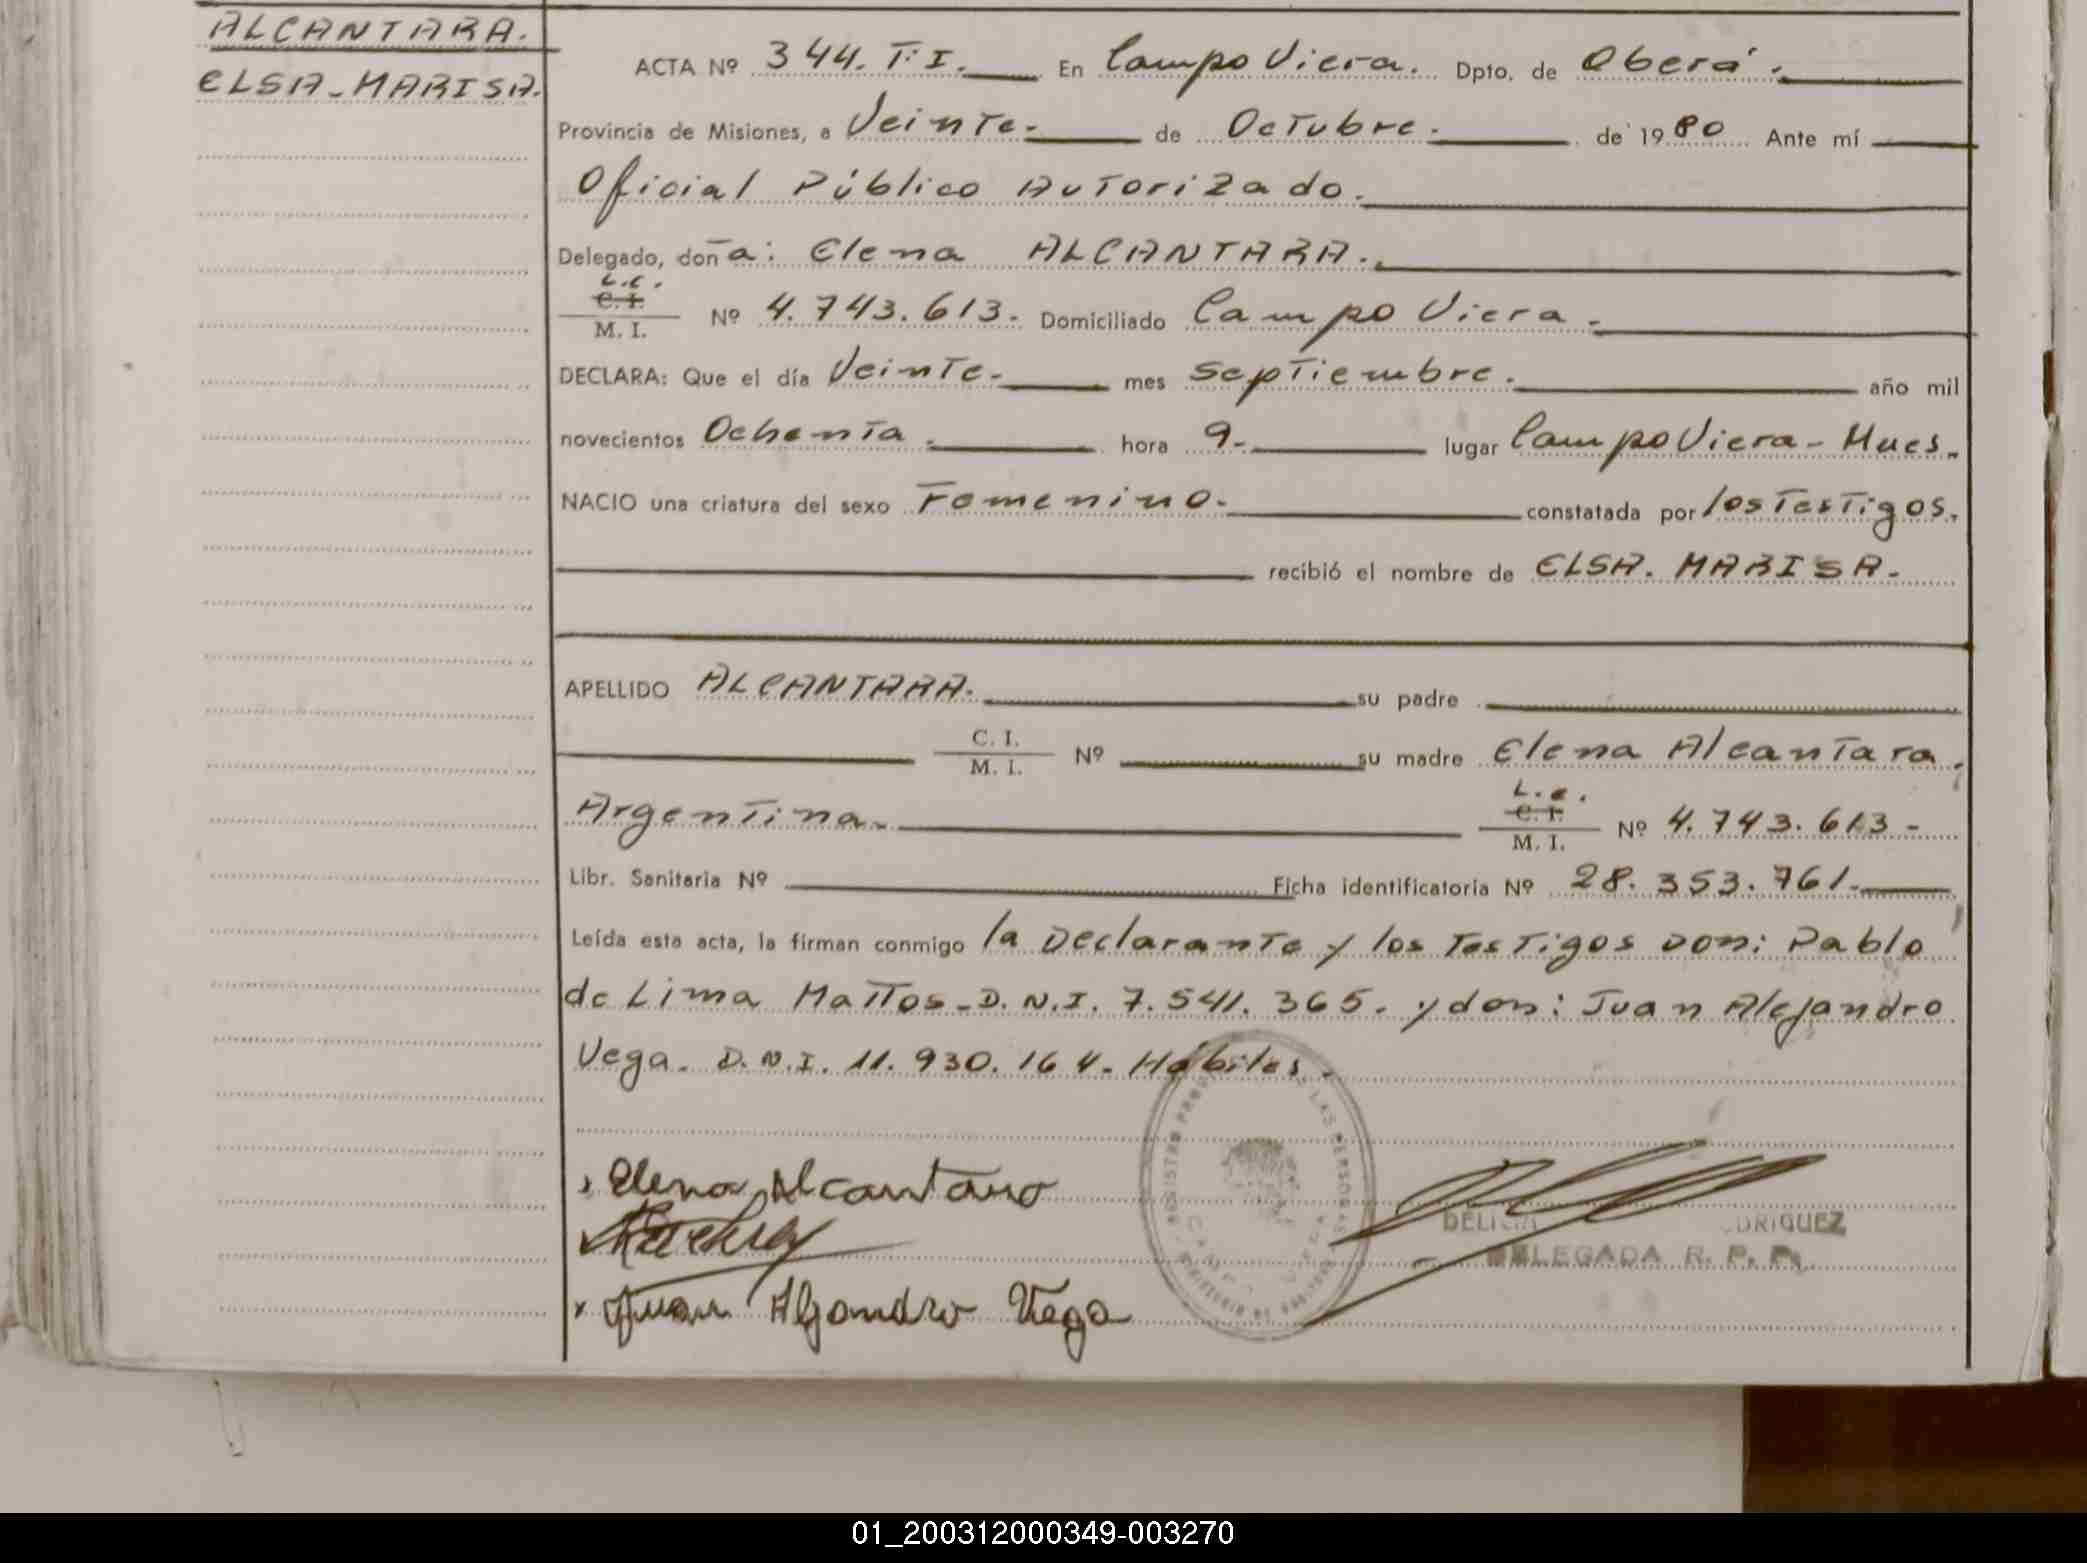 ALCANTARA.
ELSA-MARISA.
ACTA Nº 344. T.I. En Campo Viera. Dpto. de Oberá.
Provincia de Misiones, a Veinte. de Octubre. de 1980 Ante mí
Oficial Público Autorizado.
Delegado, doña: Elena ALCANTARA.
L.C.
C. I.
M. I. Nº 4.743.613. Domiciliado Campo Viera.
DECLARA: Que el día Veinte. mes septiembre. año mil
novecientos Ochenta. hora 9. lugar Campo Viera-Mnes.
NACIO una criatura del sexo Femenino. constatada por los Testigos.
recibió el nombre de ELSA. MARISA.
APELLIDO ALCANTARA. su padre
C. I.
M. I. Nº su madre Elena Alcantara.
L.C.
C. I.
Argentina. M. I. Nº 4.743.613-
Libr. Sanitaria Nº Ficha identificatoria Nº 28.353.761.
Leída esta acta, la firman conmigo la Declarante y los Testigos Don: Pablo
de Lima Mattos-D.N.I. 7.541.365. y don: Juan Alejandro
Vega. D.N.I. 11.930.164. Hábiles.
Elena Alcantara
Juan Aljandro Vega
DELEGADA R. P. P.
01_200312000349-003270